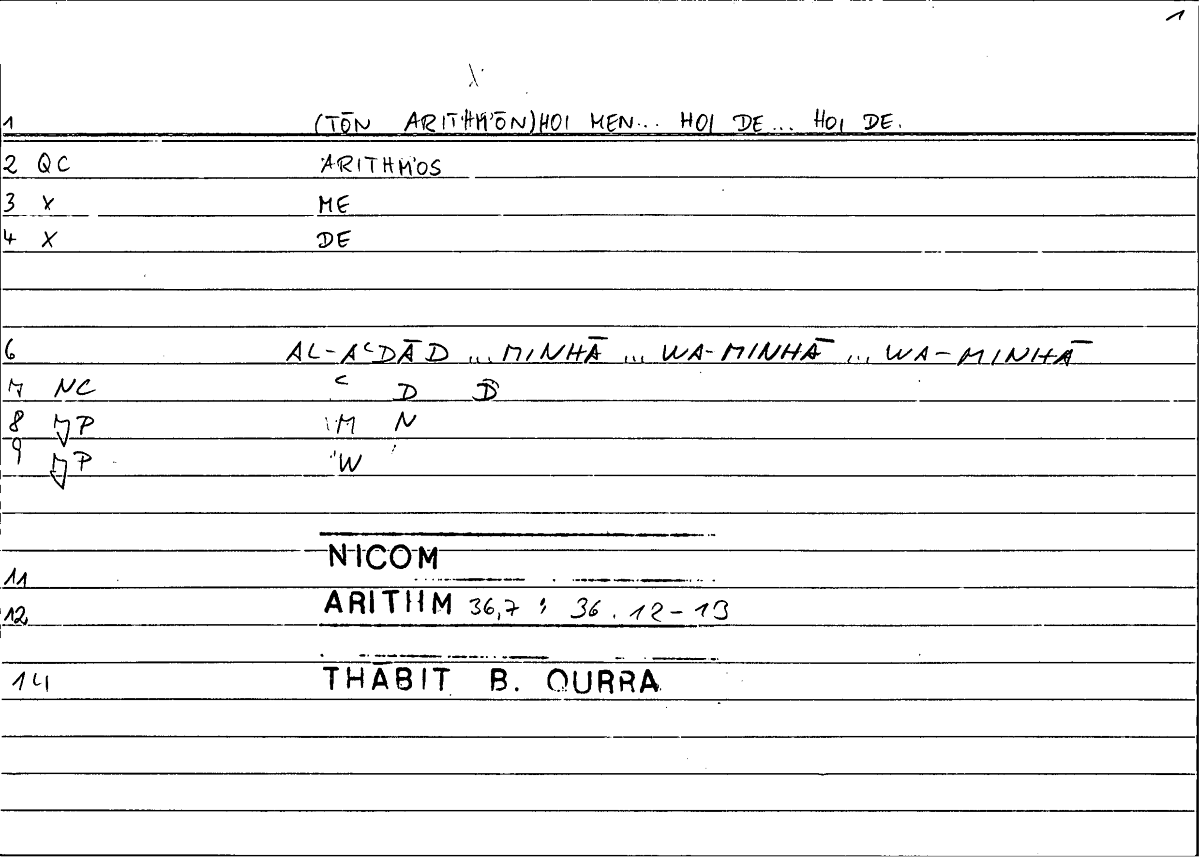 1
1 (TŌN ARITHM'ŌN) HOI MEN... HOI DE... HOI DE.
2 QC ARITHM'OS
3 X ME
4 X DE
6 AL-AʿDĀD ... MINHĀ ... WA-MINHĀ ... WA-MINHĀ
7 NC ʿ D D
8 P M N
9 P W
NICOM
11
12 ARITHM 36,7 ; 36.12-13
14 THĀBIT B. QURRA